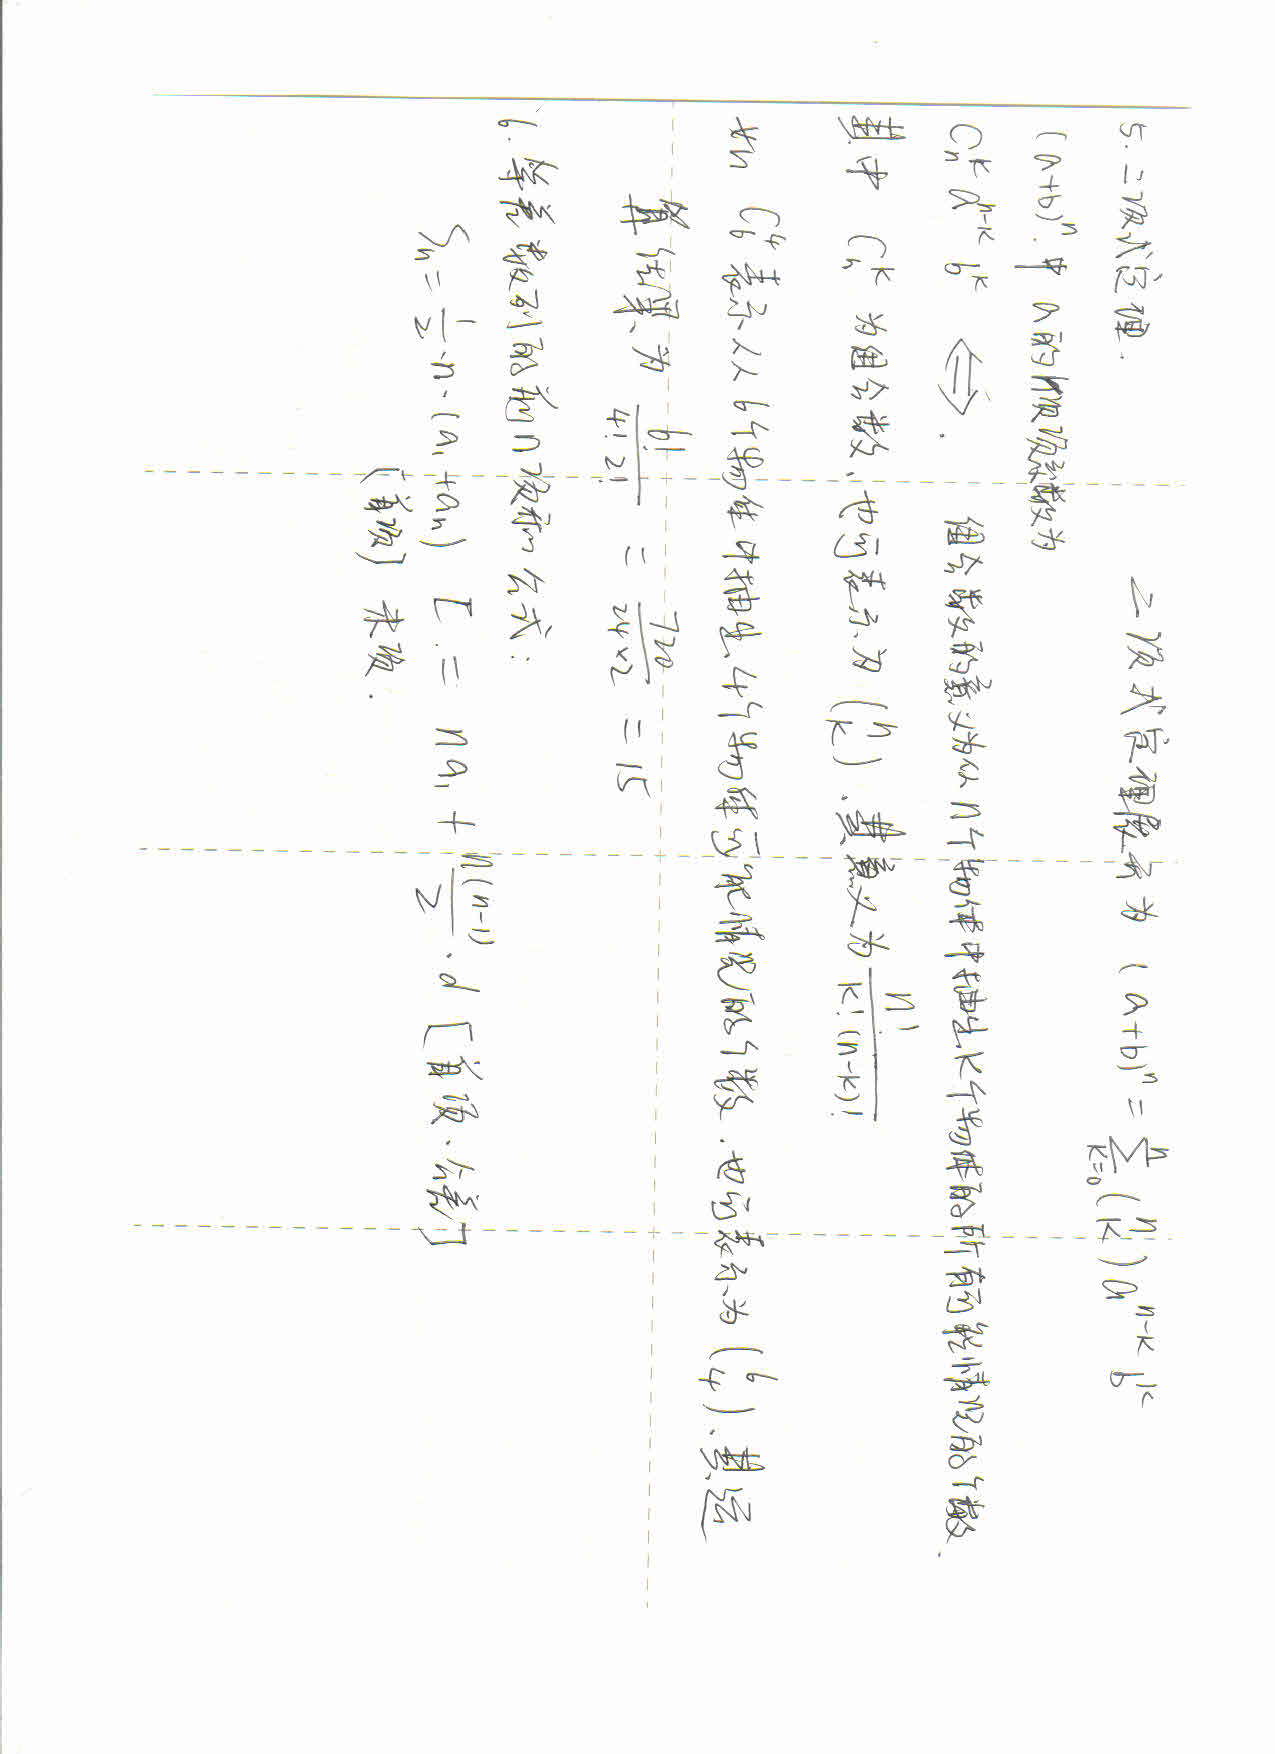 5.二项式定理. 二项式定理展示为 (a+b)ⁿ = ∑ₖ₌₀ⁿ (n k) aⁿ⁻ᵏ bᵏ
(a+b)ⁿ.中 a的k项项系数为
Cₙᵏ aⁿ⁻ᵏ bᵏ ⇔. 组合数的意义为从n个物体中抽出k个物体的所有可能情况的个数.
其中 Cₙᵏ 为组合数、也可表示为 (n k). 其意义为 n!/k!(n-k)!
如 C₆⁴ 表示从6个物体中抽出4个物体可能情况的个数.也可表示为 (6 4)、其运
算结果为 6!/4!2! = 720/24×2 = 15
6.等差数列的前n项和公式:
Sₙ = 1/2·n·(a₁+aₙ) [ = na₁ + n(n-1)/2 ·d [首项.公差]
[首项] 末项.